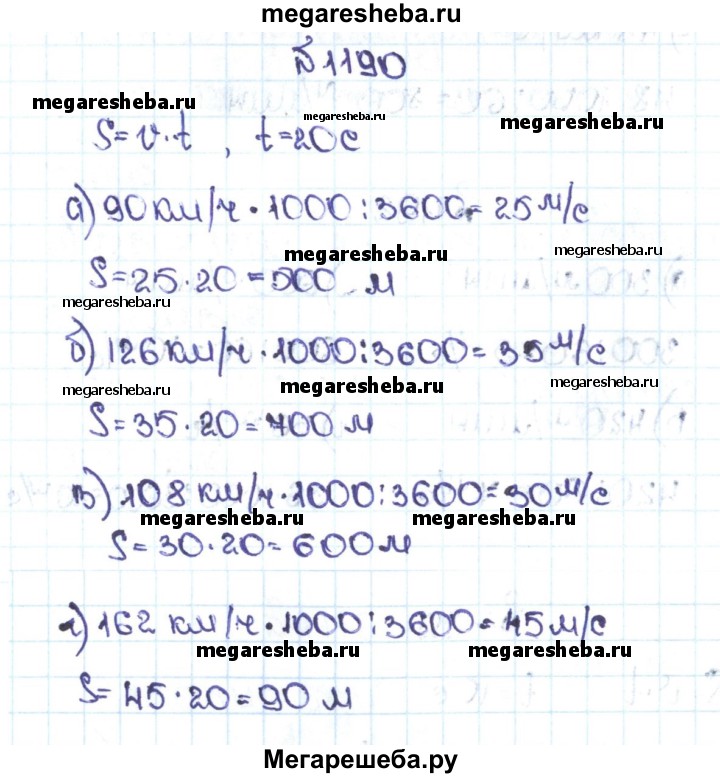 megaresheba.ru
№1190
megaresheba.ru megaresheba.ru megaresheba.ru
S=v·t, t=20с
а) 90 км/ч·1000:3600=25 м/с
megaresheba.ru megaresheba.ru
S=25·20=500 м
megaresheba.ru
б) 126 км/ч·1000:3600=35 м/с
megaresheba.ru megaresheba.ru megaresheba.ru
S=35·20=700 м
в) 108 км/ч·1000:3600=30 м/с
megaresheba.ru megaresheba.ru
S=30·20=600 м
г) 162 км/ч·1000:3600=45 м/с
megaresheba.ru megaresheba.ru
S=45·20=90 м
Мегарешеба.ру